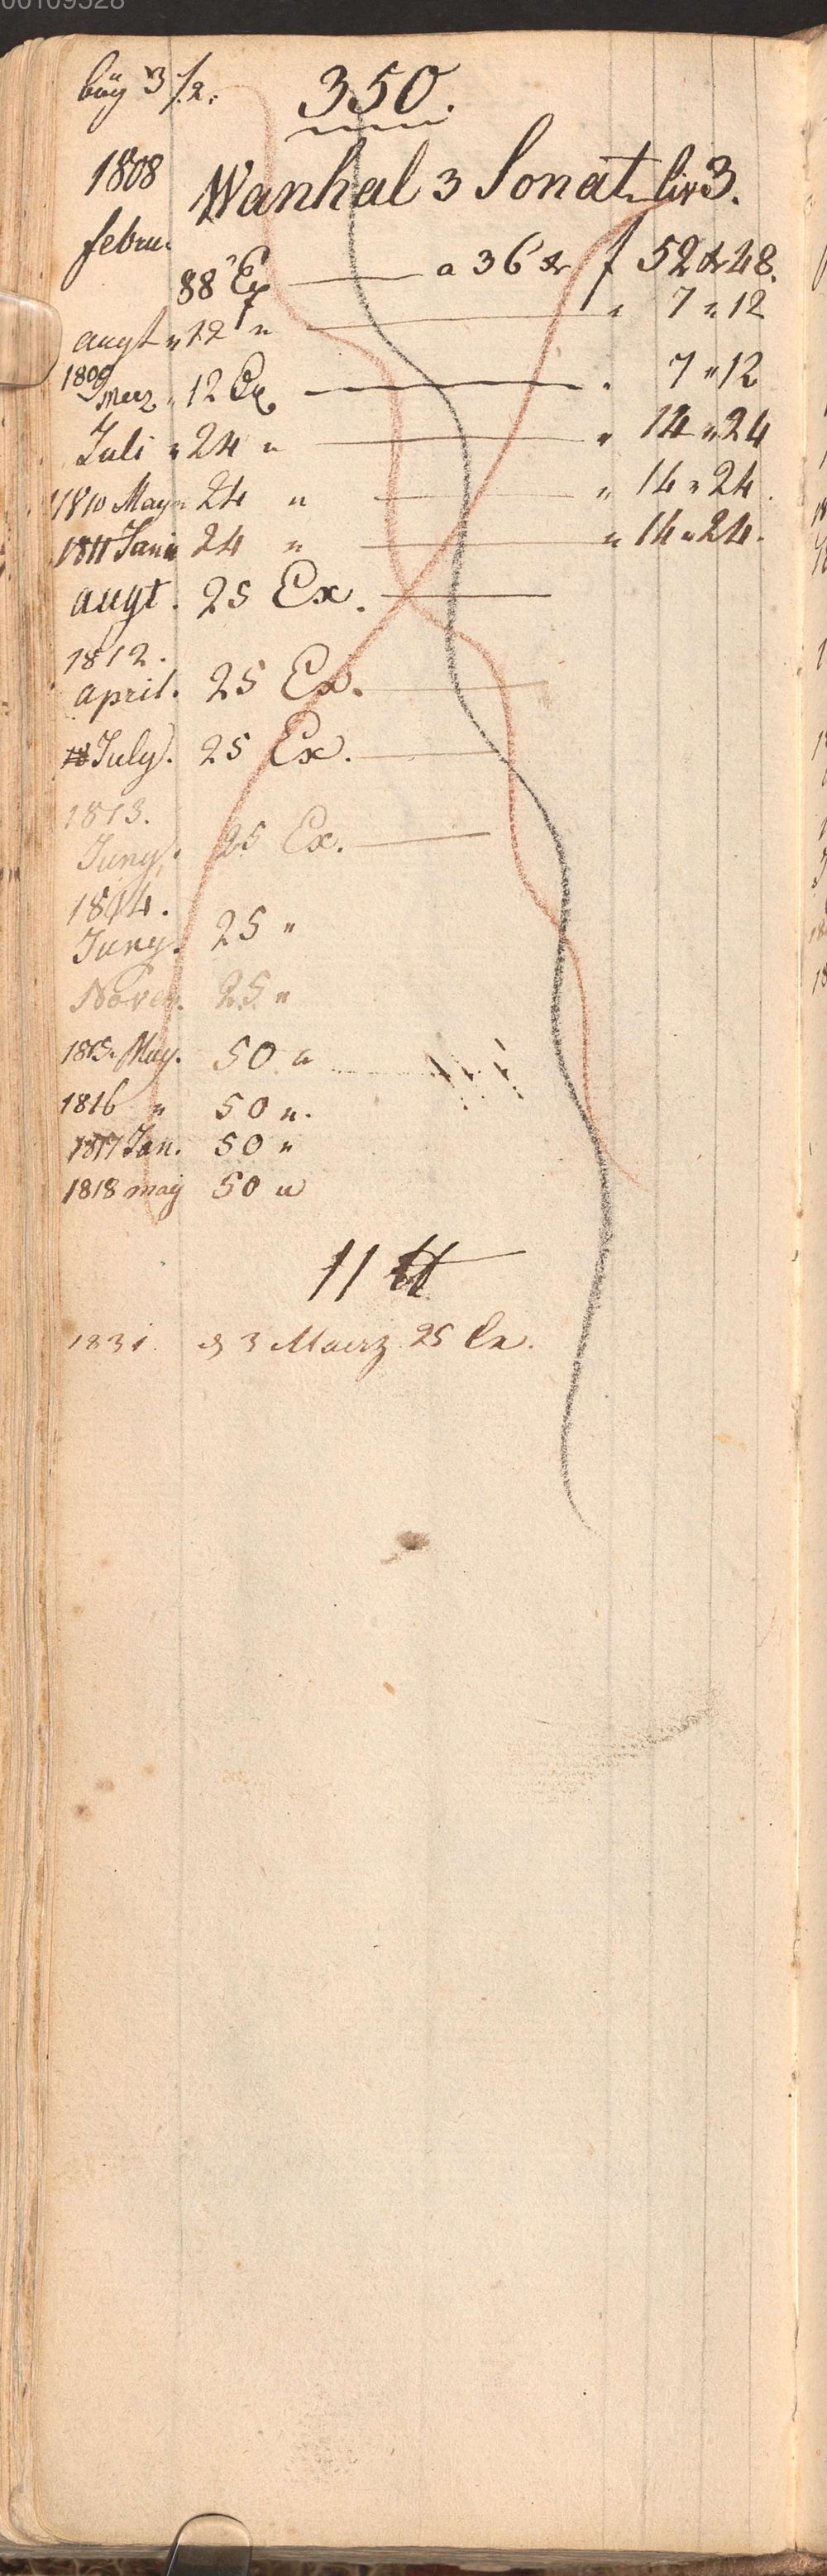 böÿ 3/2.
350.
1808 Wanhal 3 Sonat. liv 3.
febru.
88 Ex a 36 xr f 52 xr 48.
augt " 12 " " 7 " 12
1809
Merz " 12 Ex " 7 " 12
Juli " 24 " " 14 " 24
1810 May " 24 " " 14 " 24.
1811 Jan 24 " " 14 " 24.
augt. 25 Ex.
1812.
april. 25 Ex.
July. 25 Ex.
1813.
Juny. 25 Ex.
1814.
Juny. 25 "
Novem. 25 "
1815. May. 50 "
1816 " 50 ".
1817 Jan. 50 "
1818 may 50 "
11 tt
1831. d 3 Maerz 25 Ex.